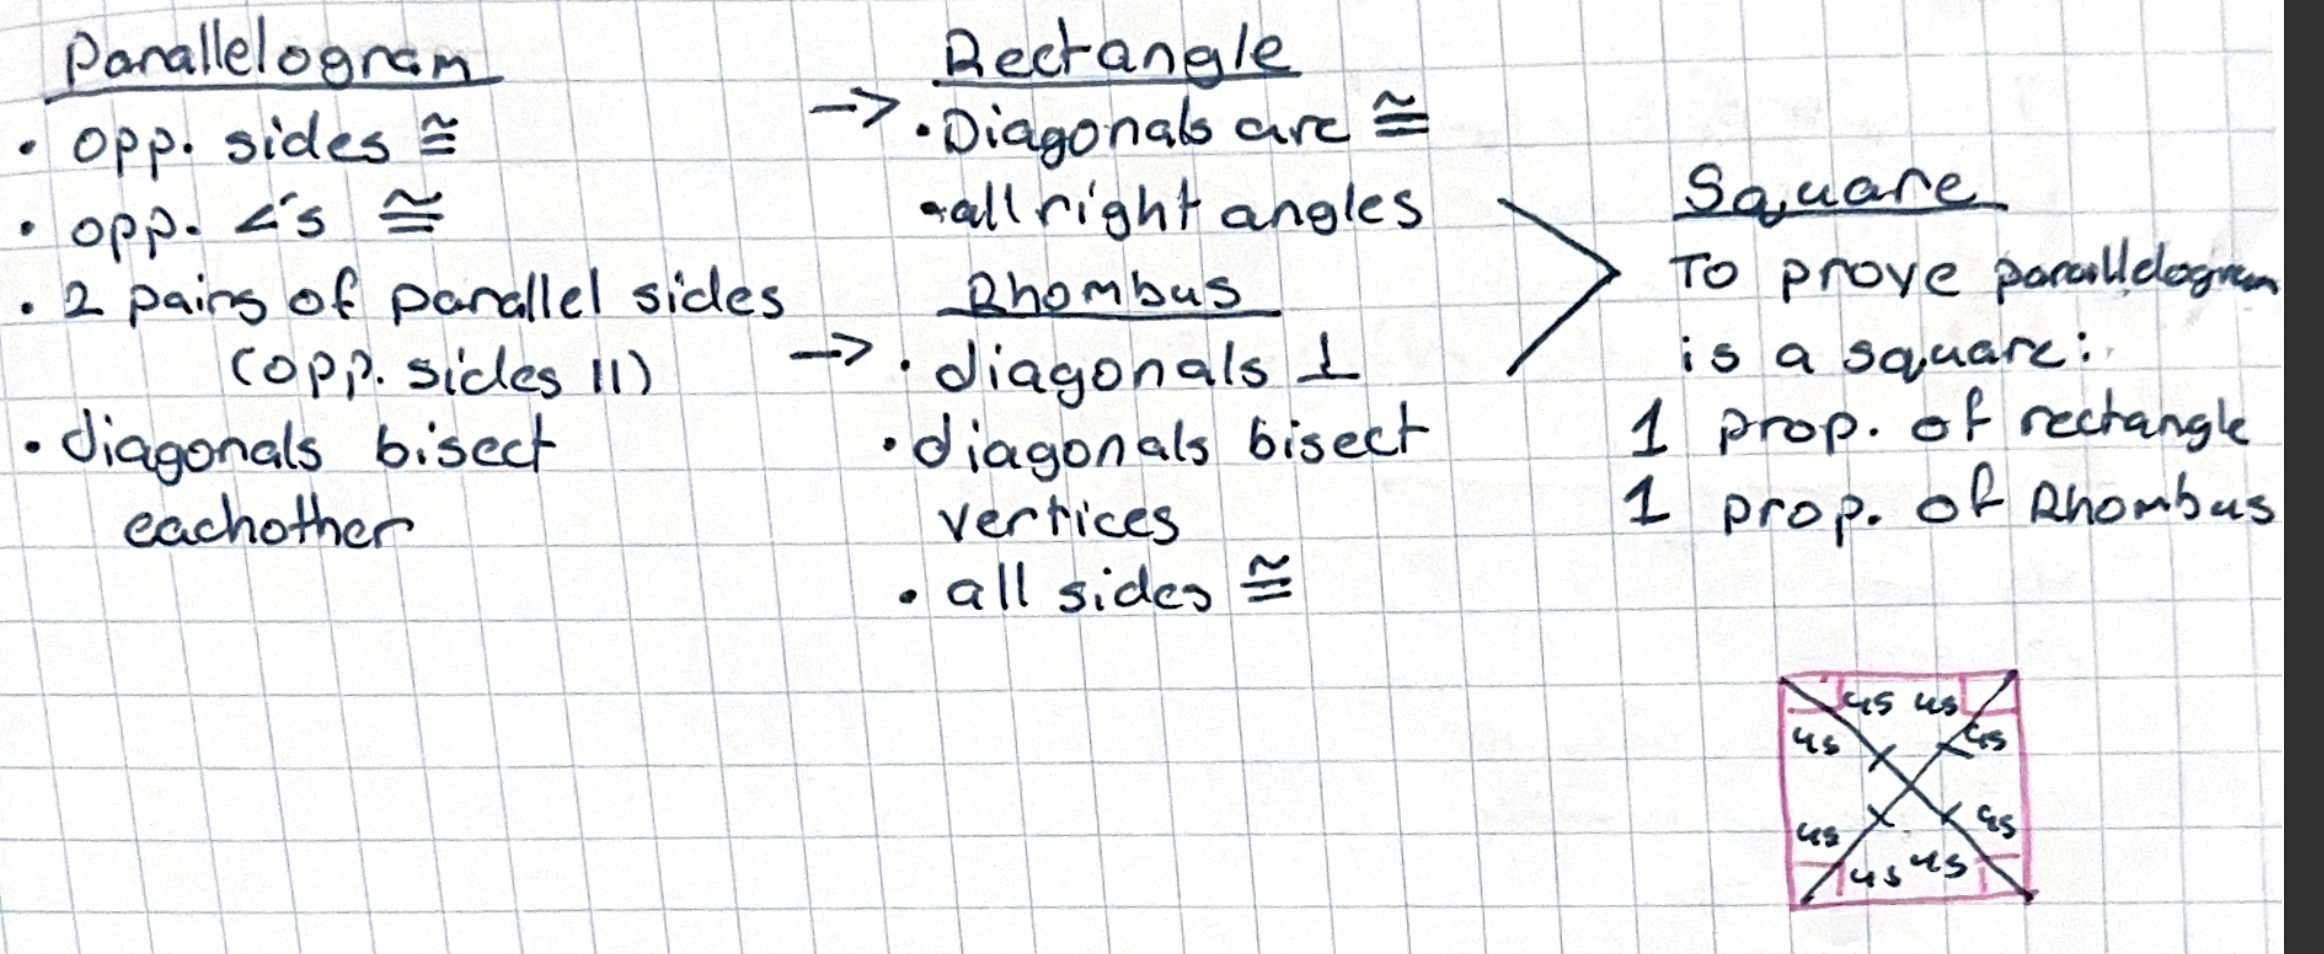 Parallelogram
• opp. sides ≅
• opp. ∠'s ≅
• 2 pairs of parallel sides
(opp. sides ||)
• diagonals bisect
eachother
Rectangle
-> • Diagonals are ≅
• all right angles
Rhombus
-> • diagonals ⊥
• diagonals bisect
vertices
• all sides ≅
Square
To prove parallelogram
is a square:
1 prop. of rectangle
1 prop. of Rhombus
45 45
45 45
45 45
45 45